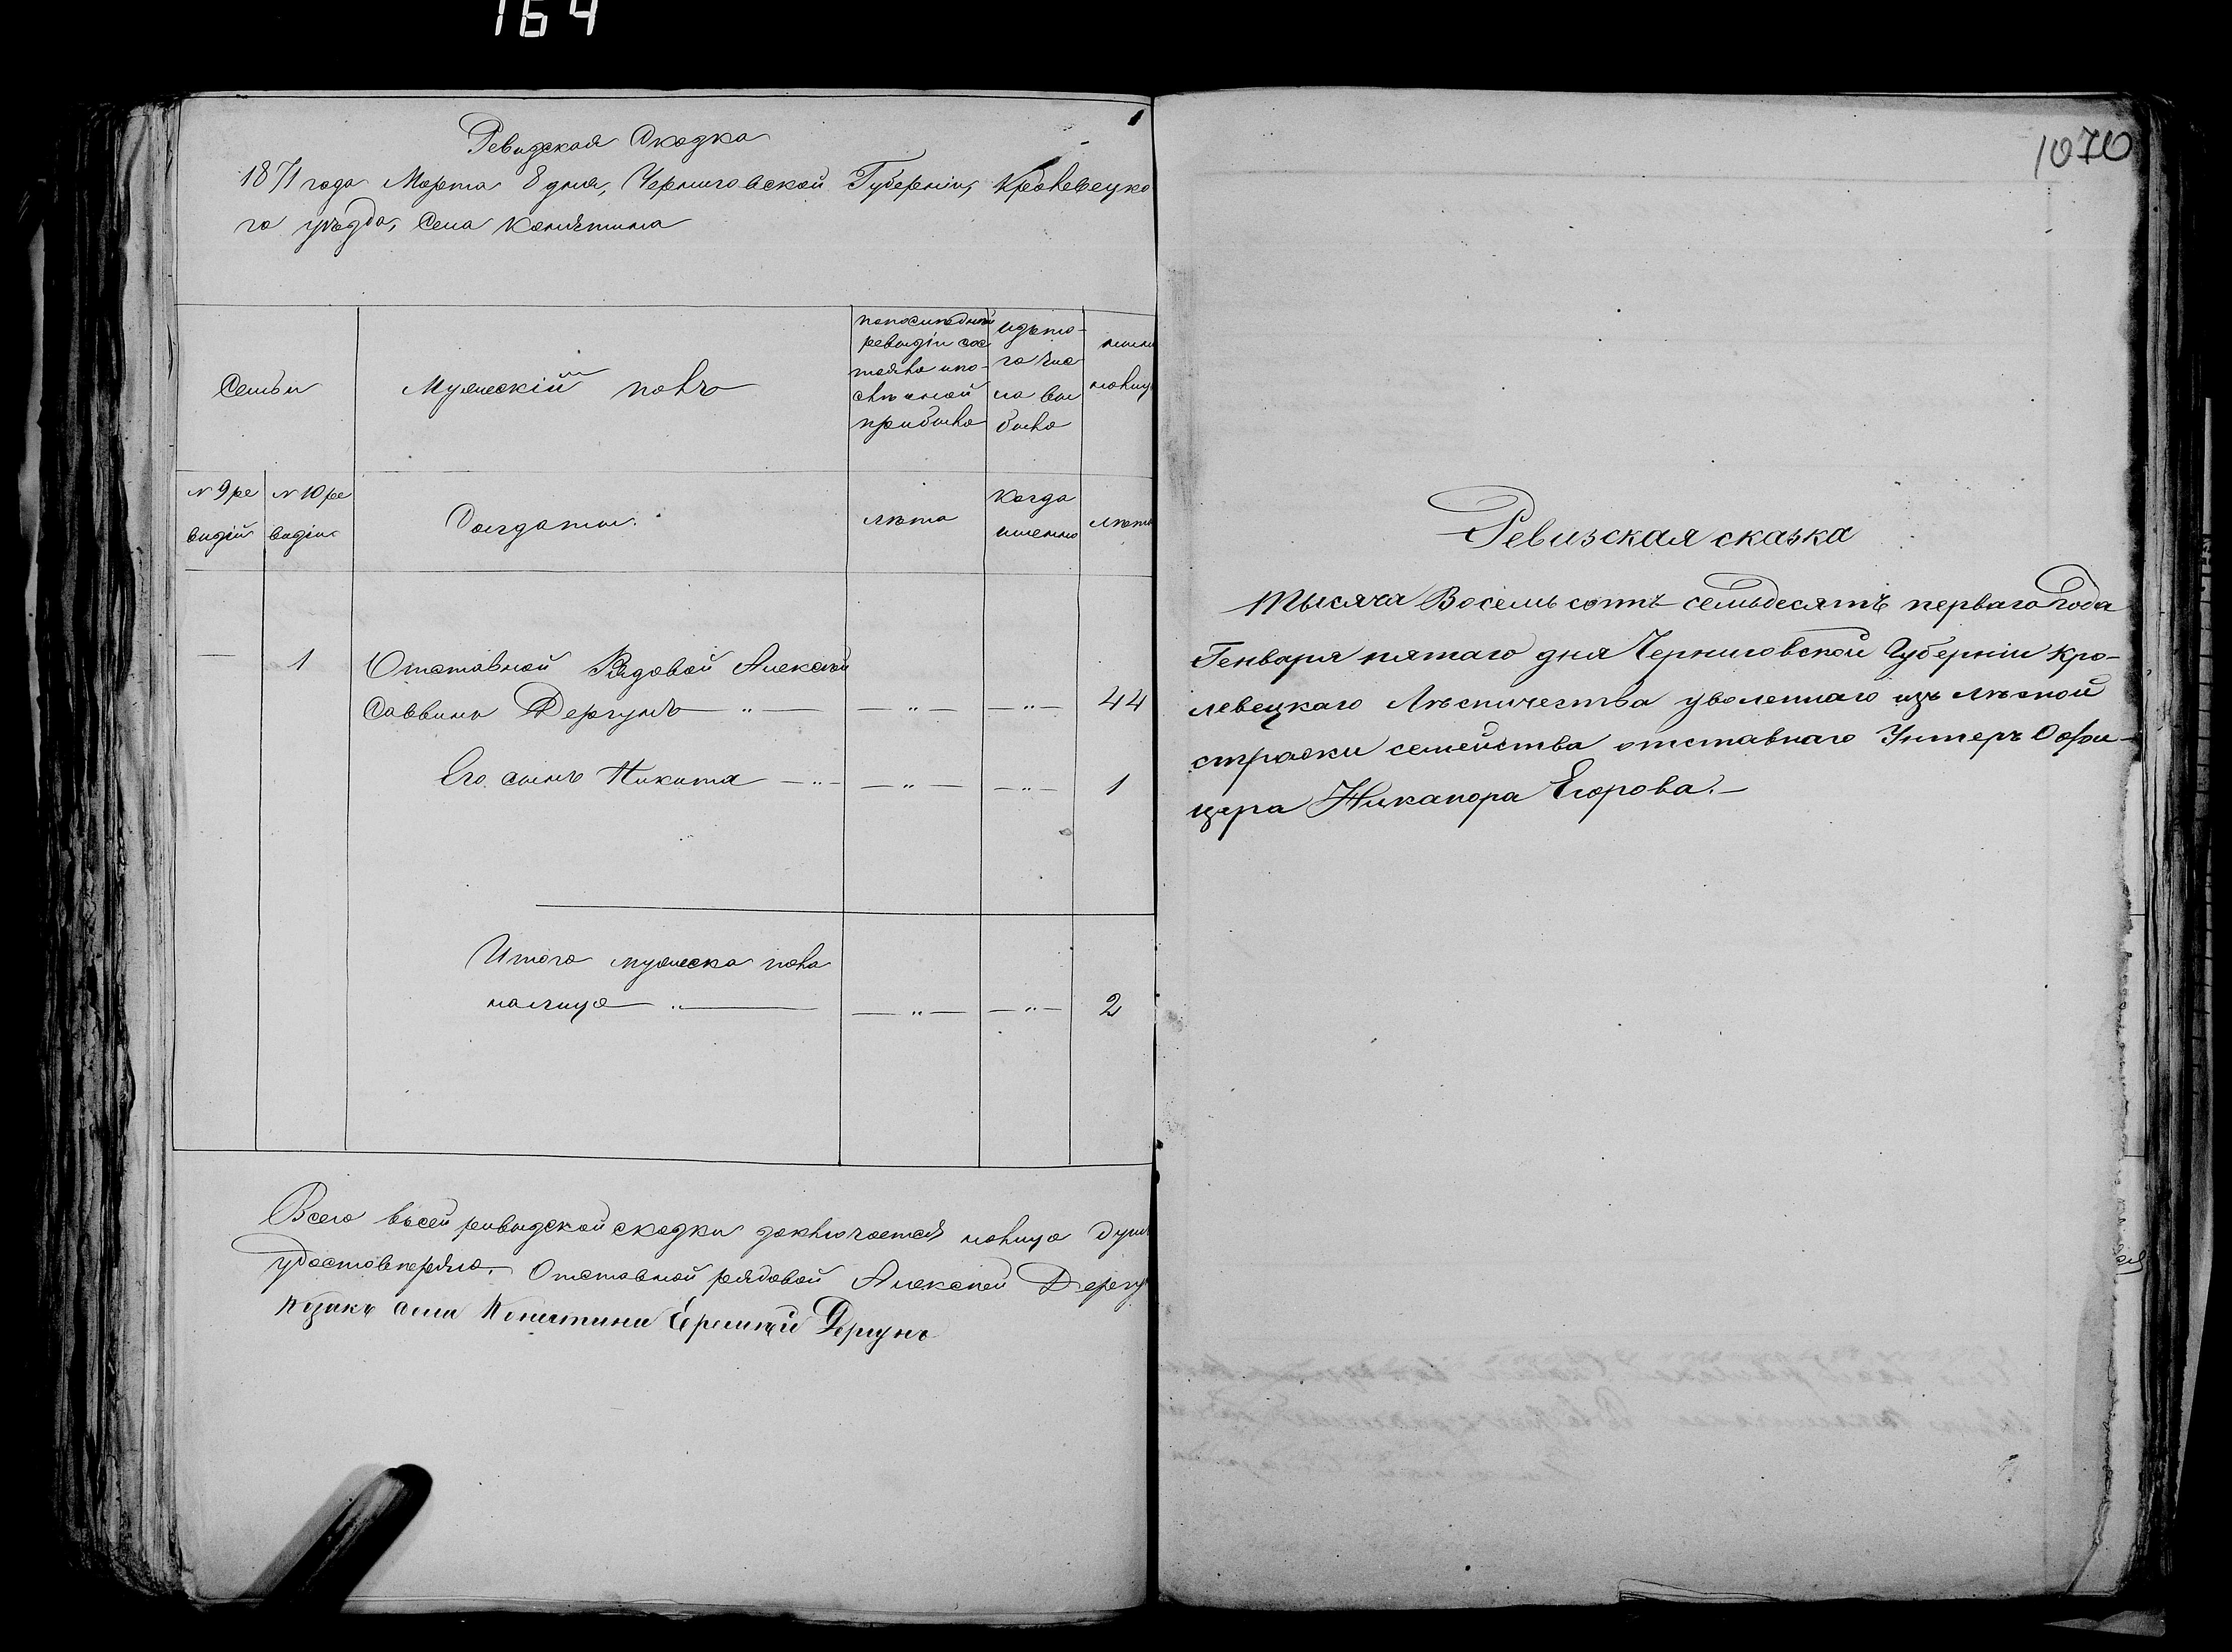 164
Ревизская Сказка
1871 года Марта 8 дня, Черниговской Губерніи, Кролевецко
го уѣзда, Села Конятина
Семьи
Мужескій полъ
по послѣдней
ревизіи сос
тояло и по-
слѣ оной
прибыло
изъ то-
го чис
ла вы
было
нынѣ
налицо
N 9 ре
визіи
N 10 ре
визіи
Солдаты.
лѣта
когда
именно
лѣта
— 1 Отставной Рядовой Алексѣй
Саввинъ Дергунъ — " — — " — — " — 44
Его сынъ Никита — " — — " — — " — 1
Итого мужеска пола
налицо " — — " — — " — 2
Всего въ сей ревизской сказки заключается налицо душ
удостовѣряю. Отставной рядовой Алексѣй Дергу
Козакъ села Конятина Еремѣй Дергунъ
1070
Ревизская сказка
Тысяча Восемь сотъ семьдесятъ перваго Года
Генваря пятаго дня Черниговской Губерніи Кро-
левецкаго Лѣсничества уволеннаго изъ лѣсной
стражи семейства отставнаго Унтеръ Офи-
цера Никанора Егорова.—